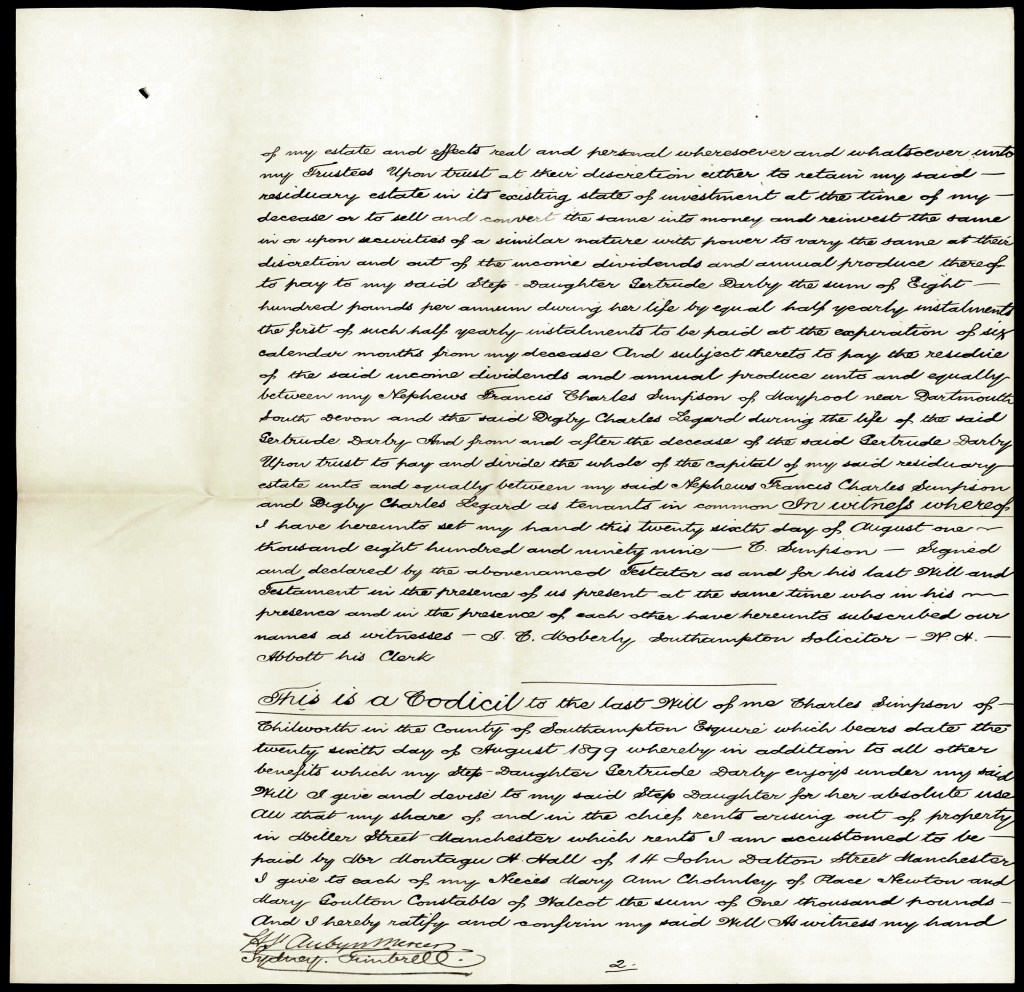 of my estate and effects real and personal wheresoever and whatsoever unto
my Trustees Upon trust at their discretion either to retain my said —
residuary estate in its existing state of investment at the time of my —
decease or to sell and convert the same into money and reinvest the same
in or upon securities of a similar nature with power to vary the same at their
discretion and out of the income dividends and annual produce thereof
to pay to my said Step-Daughter Gertrude Darby the sum of Eight —
hundred pounds per annum during her life by equal half yearly instalments
the first of such half yearly instalments to be paid at the expiration of six
calendar months from my decease And subject thereto to pay the residue
of the said income dividends and annual produce unto and equally
between my Nephews Francis Charles Simpson of Maypool near Dartmouth
South Devon and the said Digby Charles Legard during the life of the said
Gertrude Darby And from and after the decease of the said Gertrude Darby
Upon trust to pay and divide the whole of the capital of my said residuary
estate unto and equally between my said Nephews Francis Charles Simpson
and Digby Charles Legard as tenants in common In witness whereof
I have hereunto set my hand this twenty sixth day of August one —
thousand eight hundred and ninety nine — C. Simpson — Signed
and declared by the abovenamed Testator as and for his last Will and
Testament in the presence of us present at the same time who in his —
presence and in the presence of each other have hereunto subscribed our
names as witnesses — J. C. Moberly Southampton Solicitor — W. H. —
Abbott his Clerk
This is a Codicil to the last Will of me Charles Simpson of —
Chilworth in the County of Southampton Esquire which bears date the
twenty sixth day of August 1899 whereby in addition to all other
benefits which my Step-Daughter Gertrude Darby enjoys under my said
Will I give and devise to my said Step Daughter for her absolute use
All that my share of and in the chief rents arising out of property
in Miller Street Manchester which rents I am accustomed to be —
paid by Mr Montagu H. Hall of 14 John Dalton Street Manchester
I give to each of my Nieces Mary Ann Cholmley of Place Newton and
Mary Goulton Constable of Walcot the sum of One thousand pounds —
And I hereby ratify and confirm my said Will As witness my hand
H St Aubyn Mercer
Sydney. Gimbrell.
2.